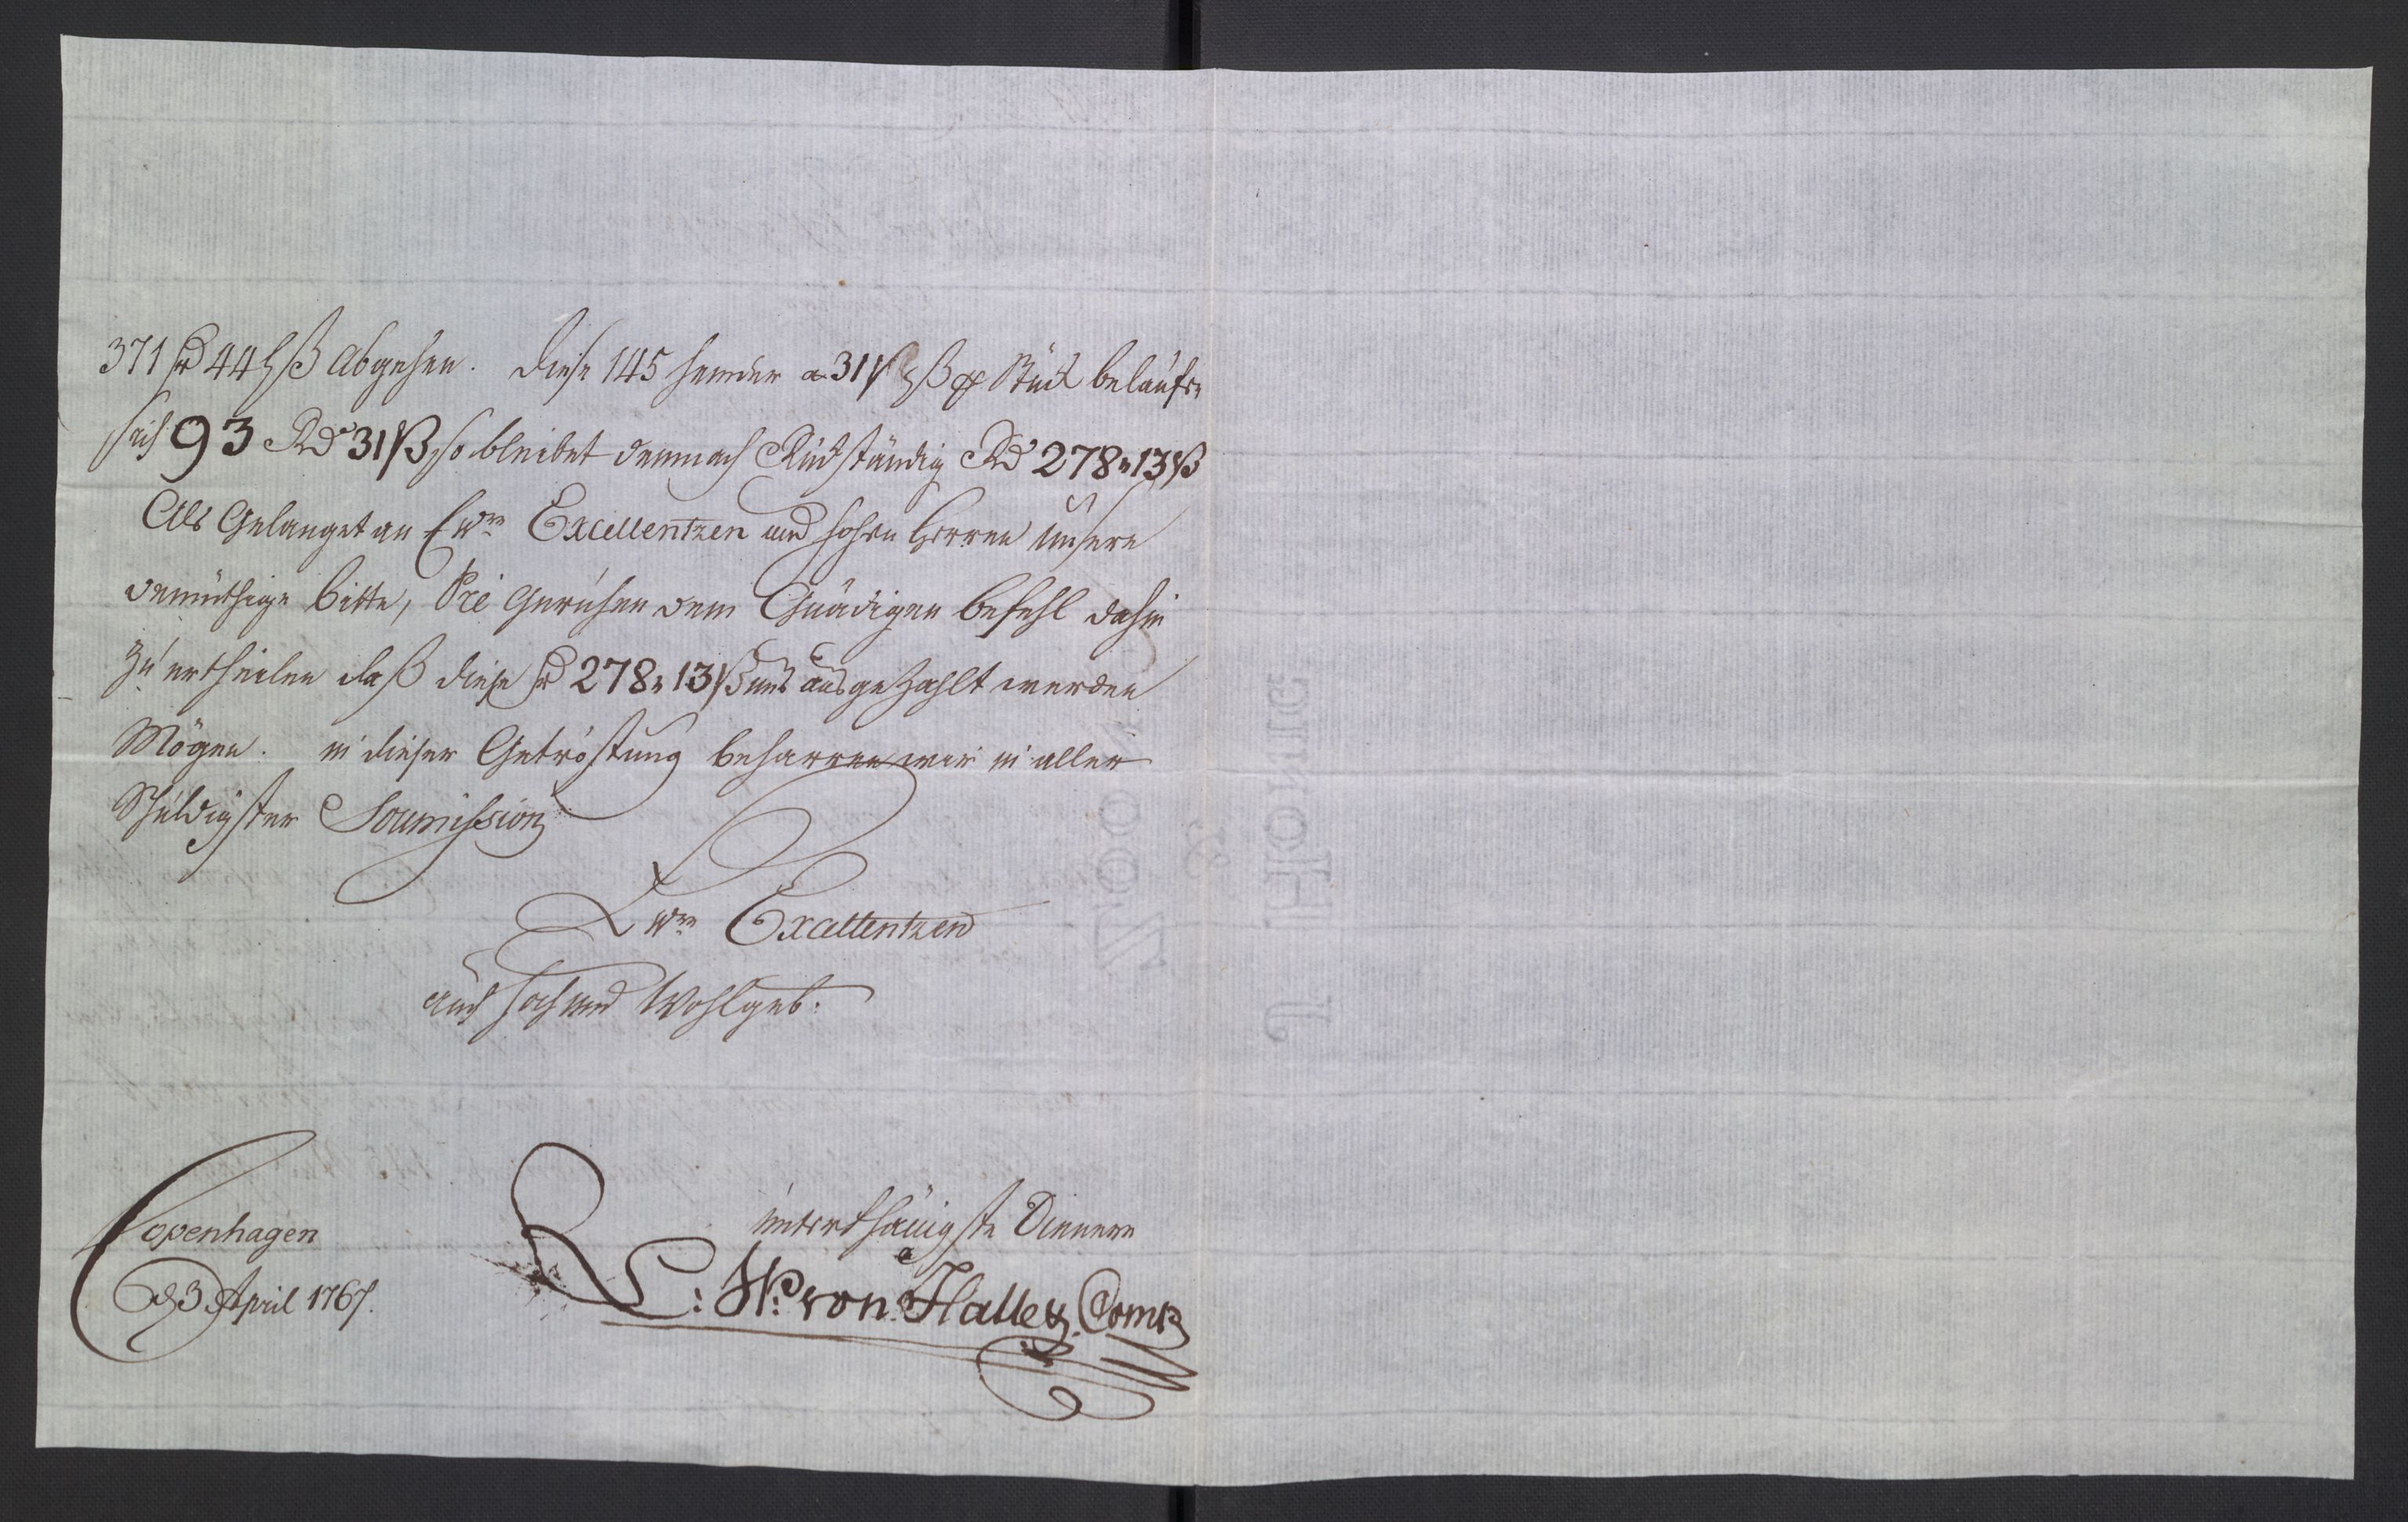 371 Rd 44 ß Abgehen. Diese 145 hemder a 31 ß Stück belaufen
sich 93 Rd 31 ß so bleibet demnach Rückständig Rd 278 " 13 ß
Als Gelanget an Ewr Excellentzen und hohen Herren Unsere
demüthige bitte, Sie Gerühen dem Gnädigen befehl dahin
zu ertheilen daß diese Rd 278 " 13 ß uns ausgezahlt werden
Mögen. in dieser Getröstung beharren wir in aller
Schuldigster Soumission
Ewr Excellentzen
auch hoch und Wohlgeb:
unterthänigste Dienere
Copenhagen
d 3 April 1767.
L: W: von Halle & Comp
J Honig
&
Zoonen